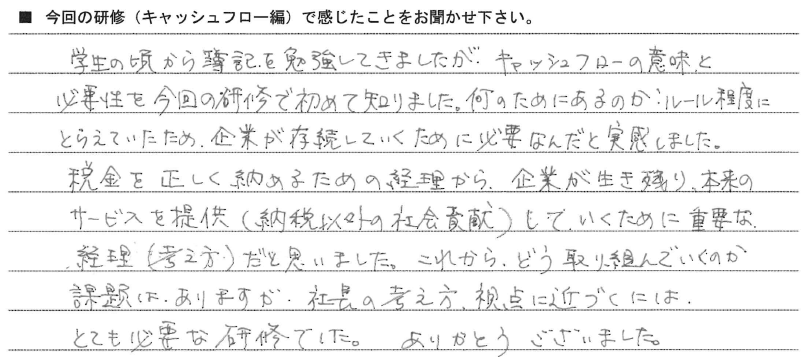 ■ 今回の研修（キャッシュフロー編）で感じたことをお聞かせ下さい。
学生の頃から簿記を勉強してきましたが、キャッシュフローの意味と
必要性を今回の研修で初めて知りました。何のためにあるのか：ルール程度に
とらえていたため、企業が存続していくために必要なんだと実感しました。
税金を正しく納めるための経理から、企業が生き残り、本来の
サービスを提供（納税以外の社会貢献）して、いくために重要な、
経理（考え方）だと思いました。これから、どう取り組んでいくのか
課題は、ありますが、社長の考え方、視点に近づくには、
とても必要な研修でした。ありがとうございました。